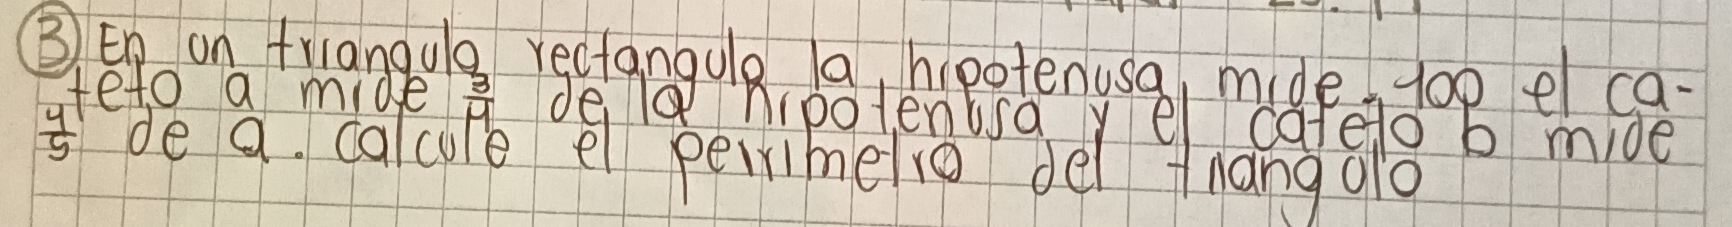 3) En un triangulo rectangulo la hipotenusa mide 100 el ca-
teto a mide 3/4 de la hipotenusa y el cateto b mide
4/5 de a. calcule el perrimetro del triangulo